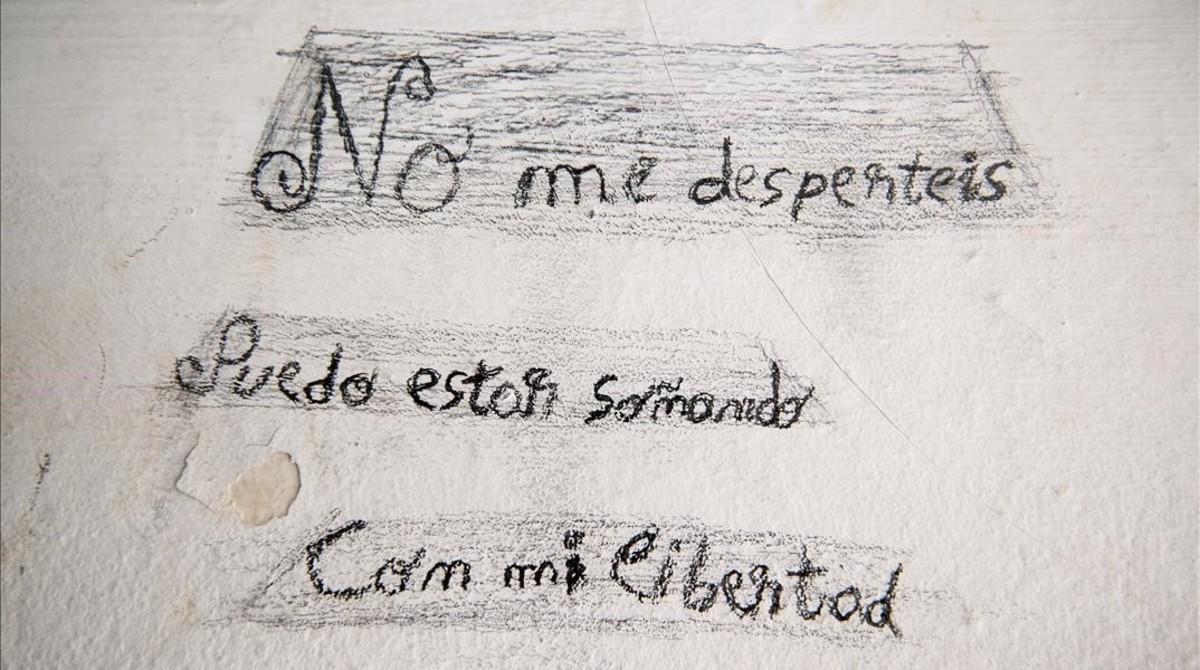 No me desperteis
Puedo estar soñando
Con mi libertad